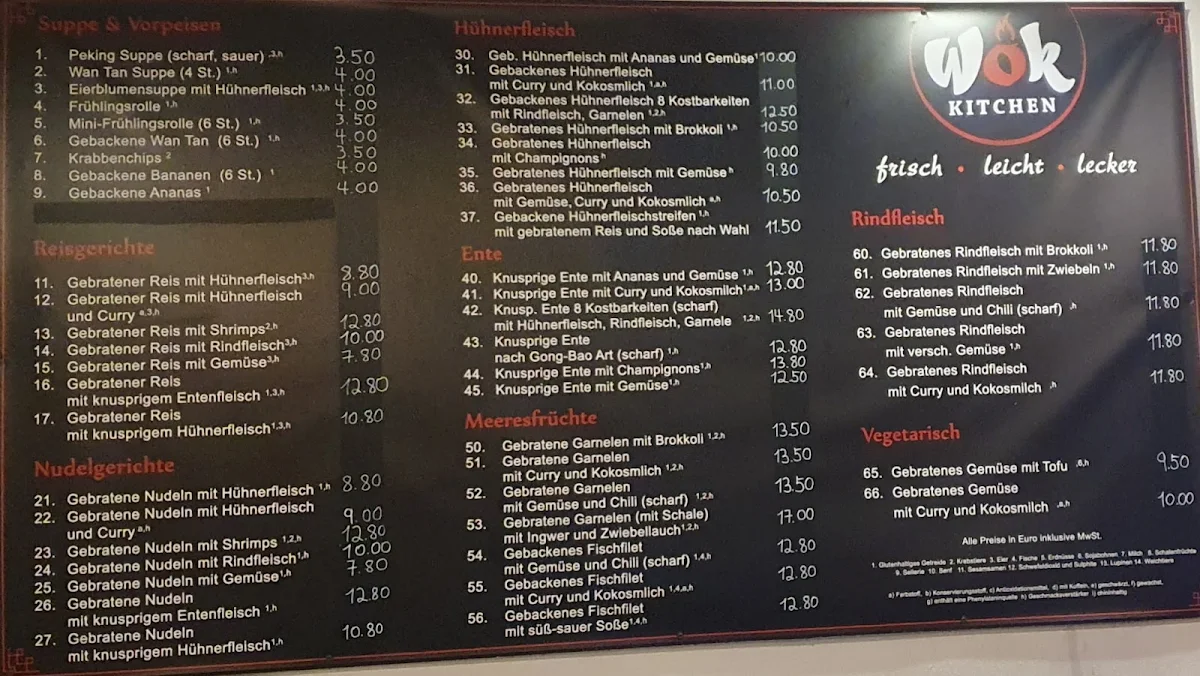 Suppe & Vorpeisen
1. Peking Suppe (scharf, sauer) ,3,h 3.50
2. Wan Tan Suppe (4 St.) 1,h 4.00
3. Eierblumensuppe mit Hühnerfleisch 1,3,h 4.00
4. Frühlingsrolle 1,h 4.00
5. Mini-Frühlingsrolle (6 St.) 1,h 3.50
6. Gebackene Wan Tan (6 St.) 1,h 4.00
7. Krabbenchips 2 3.50
8. Gebackene Bananen (6 St.) 1 4.00
9. Gebackene Ananas 1 4.00
Reisgerichte
11. Gebratener Reis mit Hühnerfleisch3,h 8.80
12. Gebratener Reis mit Hühnerfleisch 9.00
und Curry a,3,h
13. Gebratener Reis mit Shrimps2,h 12.80
14. Gebratener Reis mit Rindfleisch3,h 10.00
15. Gebratener Reis mit Gemüse3,h 7.80
16. Gebratener Reis
mit knusprigem Entenfleisch 1,3,h 12.80
17. Gebratener Reis
mit knusprigem Hühnerfleisch1,3,h 10.80
Nudelgerichte
21. Gebratene Nudeln mit Hühnerfleisch 1,h 8.80
22. Gebratene Nudeln mit Hühnerfleisch
und Curry a,h 9.00
23. Gebratene Nudeln mit Shrimps 1,2,h 12.80
24. Gebratene Nudeln mit Rindfleisch1,h 10.00
25. Gebratene Nudeln mit Gemüse1,h 7.80
26. Gebratene Nudeln
mit knusprigem Entenfleisch 1,h 12.80
27. Gebratene Nudeln
mit knusprigem Hühnerfleisch1,h 10.80
Hühnerfleisch
30. Geb. Hühnerfleisch mit Ananas und Gemüse1 10.00
31. Gebackenes Hühnerfleisch
mit Curry und Kokosmilch 1,a,h 11.00
32. Gebackenes Hühnerfleisch 8 Kostbarkeiten
mit Rindfleisch, Garnelen 1,2,h 12.50
33. Gebratenes Hühnerfleisch mit Brokkoli 1,h 10.50
34. Gebratenes Hühnerfleisch
mit Champignons h 10.00
35. Gebratenes Hühnerfleisch mit Gemüse h 9.80
36. Gebratenes Hühnerfleisch
mit Gemüse, Curry und Kokosmilch a,h 10.50
37. Gebackene Hühnerfleischstreifen 1,h
mit gebratenem Reis und Soße nach Wahl 11.50
Ente
40. Knusprige Ente mit Ananas und Gemüse 1,h 12.80
41. Knusprige Ente mit Curry und Kokosmilch1,a,h 13.00
42. Knusp. Ente 8 Kostbarkeiten (scharf)
mit Hühnerfleisch, Rindfleisch, Garnele 1,2,h 14.80
43. Knusprige Ente
nach Gong-Bao Art (scharf) 1,h 12.80
44. Knusprige Ente mit Champignons1,h 13.80
45. Knusprige Ente mit Gemüse1,h 12.50
Meeresfrüchte
50. Gebratene Garnelen mit Brokkoli 1,2,h 13.50
51. Gebratene Garnelen
mit Curry und Kokosmilch 1,2,h 13.50
52. Gebratene Garnelen
mit Gemüse und Chili (scharf) 1,2,h 13.50
53. Gebratene Garnelen (mit Schale)
mit Ingwer und Zwiebellauch1,2,h 17.00
54. Gebackenes Fischfilet
mit Gemüse und Chili (scharf) 1,4,h 12.80
55. Gebackenes Fischfilet
mit Curry und Kokosmilch 1,4,a,h 12.80
56. Gebackenes Fischfilet
mit süß-sauer Soße1,4,h 12.80
Wok
KITCHEN
frisch • leicht • lecker
Rindfleisch
60. Gebratenes Rindfleisch mit Brokkoli 1,h 11.80
61. Gebratenes Rindfleisch mit Zwiebeln 1,h 11.80
62. Gebratenes Rindfleisch
mit Gemüse und Chili (scharf) ,h 11.80
63. Gebratenes Rindfleisch
mit versch. Gemüse 1,h 11.80
64. Gebratenes Rindfleisch
mit Curry und Kokosmilch ,h 11.80
Vegetarisch
65. Gebratenes Gemüse mit Tofu ,6,h 9.50
66. Gebratenes Gemüse
mit Curry und Kokosmilch ,a,h 10.00
Alle Preise in Euro inklusive MwSt.
1. Glutenhaltiges Getreide 2. Krebstiere 3. Eier 4. Fische 5. Erdnüsse 6. Sojabohnen 7. Milch 8. Schalenfrüchte
9. Sellerie 10. Senf 11. Sesamsamen 12. Schwefeldioxid und Sulphite 13. Lupinen 14. Weichtiere
a) Farbstoff, b) Konservierungsstoff, c) Antioxidationsmittel, d) mit Koffein, e) geschwärzt, f) gewachst,
g) enthält eine Phenylalaninquelle h) Geschmacksverstärker i) chininhaltig